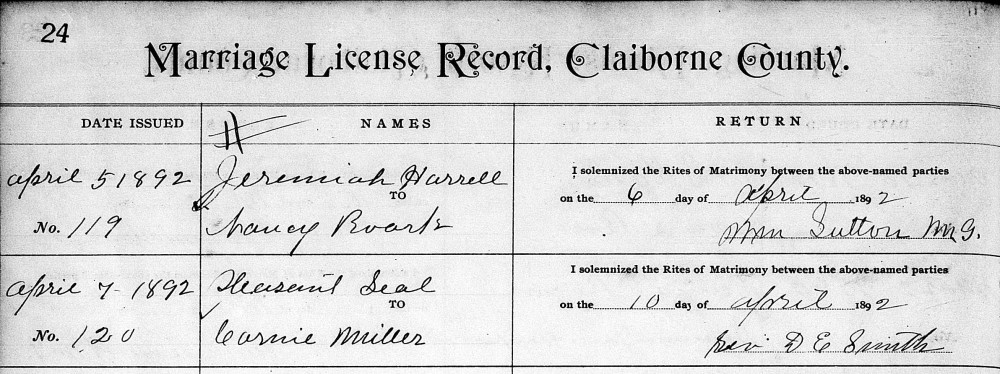 24
Marriage License Record, Claiborne County.
DATE ISSUED NAMES RETURN
April 5 1892 Jeremiah Harrell I solemnized the Rites of Matrimony between the above-named parties
TO on the 6 day of April 1892
No. 119 Nancy Roark Wm Sutton M.G.
April 7 1892 Pleasant Seal I solemnized the Rites of Matrimony between the above-named parties
TO on the 10 day of April 1892
No. 120 Carnie Miller Rev D E Smith